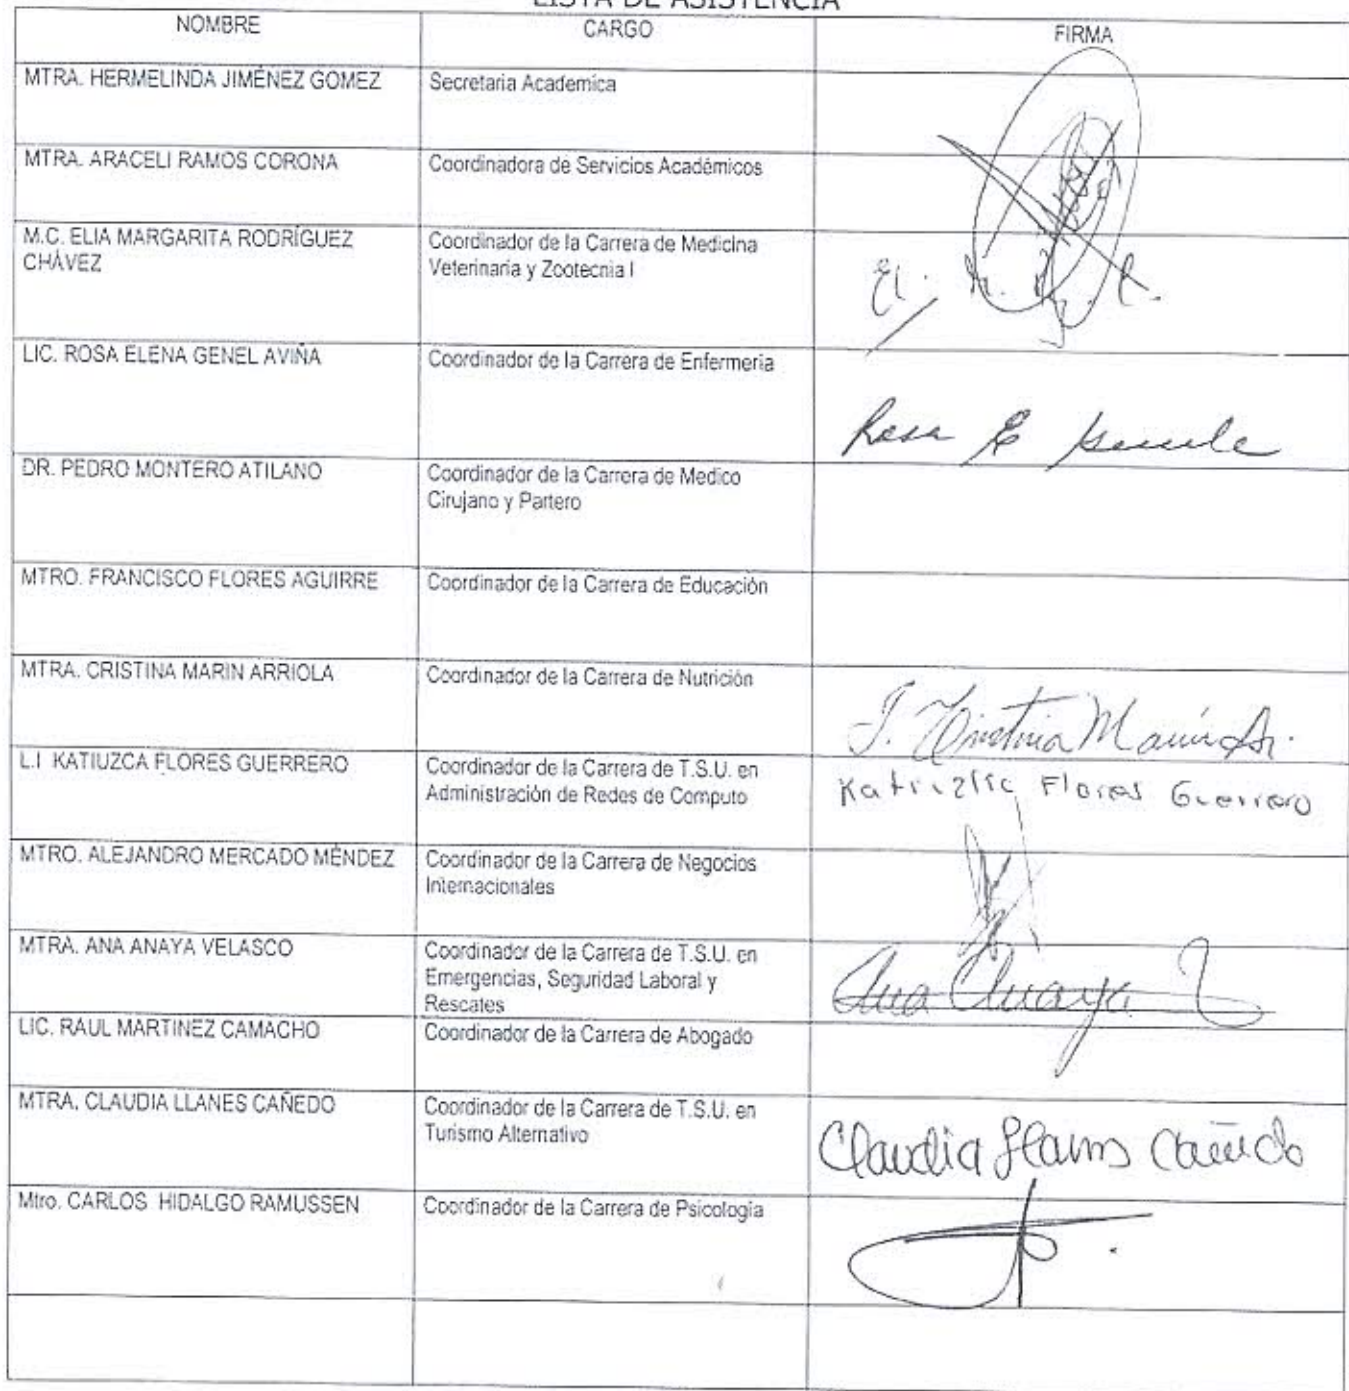 LISTA DE ASISTENCIA
NOMBRE CARGO FIRMA
MTRA. HERMELINDA JIMÉNEZ GOMEZ Secretaria Academica
MTRA. ARACELI RAMOS CORONA Coordinadora de Servicios Académicos
M.C. ELIA MARGARITA RODRÍGUEZ Coordinador de la Carrera de Medicina
CHÁVEZ Veterinaria y Zootecnia I
LIC. ROSA ELENA GENEL AVIÑA Coordinador de la Carrera de Enfermeria
Rosa E
DR. PEDRO MONTERO ATILANO Coordinador de la Carrera de Medico
Cirujano y Partero
MTRO. FRANCISCO FLORES AGUIRRE Coordinador de la Carrera de Educación
MTRA. CRISTINA MARIN ARRIOLA Coordinador de la Carrera de Nutrición
L.I KATIUZCA FLORES GUERRERO Coordinador de la Carrera de T.S.U. en
Administración de Redes de Computo Flores Guerrero
MTRO. ALEJANDRO MERCADO MÉNDEZ Coordinador de la Carrera de Negocios
Internacionales
MTRA. ANA ANAYA VELASCO Coordinador de la Carrera de T.S.U. en
Emergencias, Seguridad Laboral y Ana Anaya
Rescates
LIC. RAUL MARTINEZ CAMACHO Coordinador de la Carrera de Abogado
MTRA. CLAUDIA LLANES CAÑEDO Coordinador de la Carrera de T.S.U. en
Turismo Alternativo Claudia Llanes Cañedo
Mtro. CARLOS HIDALGO RAMUSSEN Coordinador de la Carrera de Psicologia